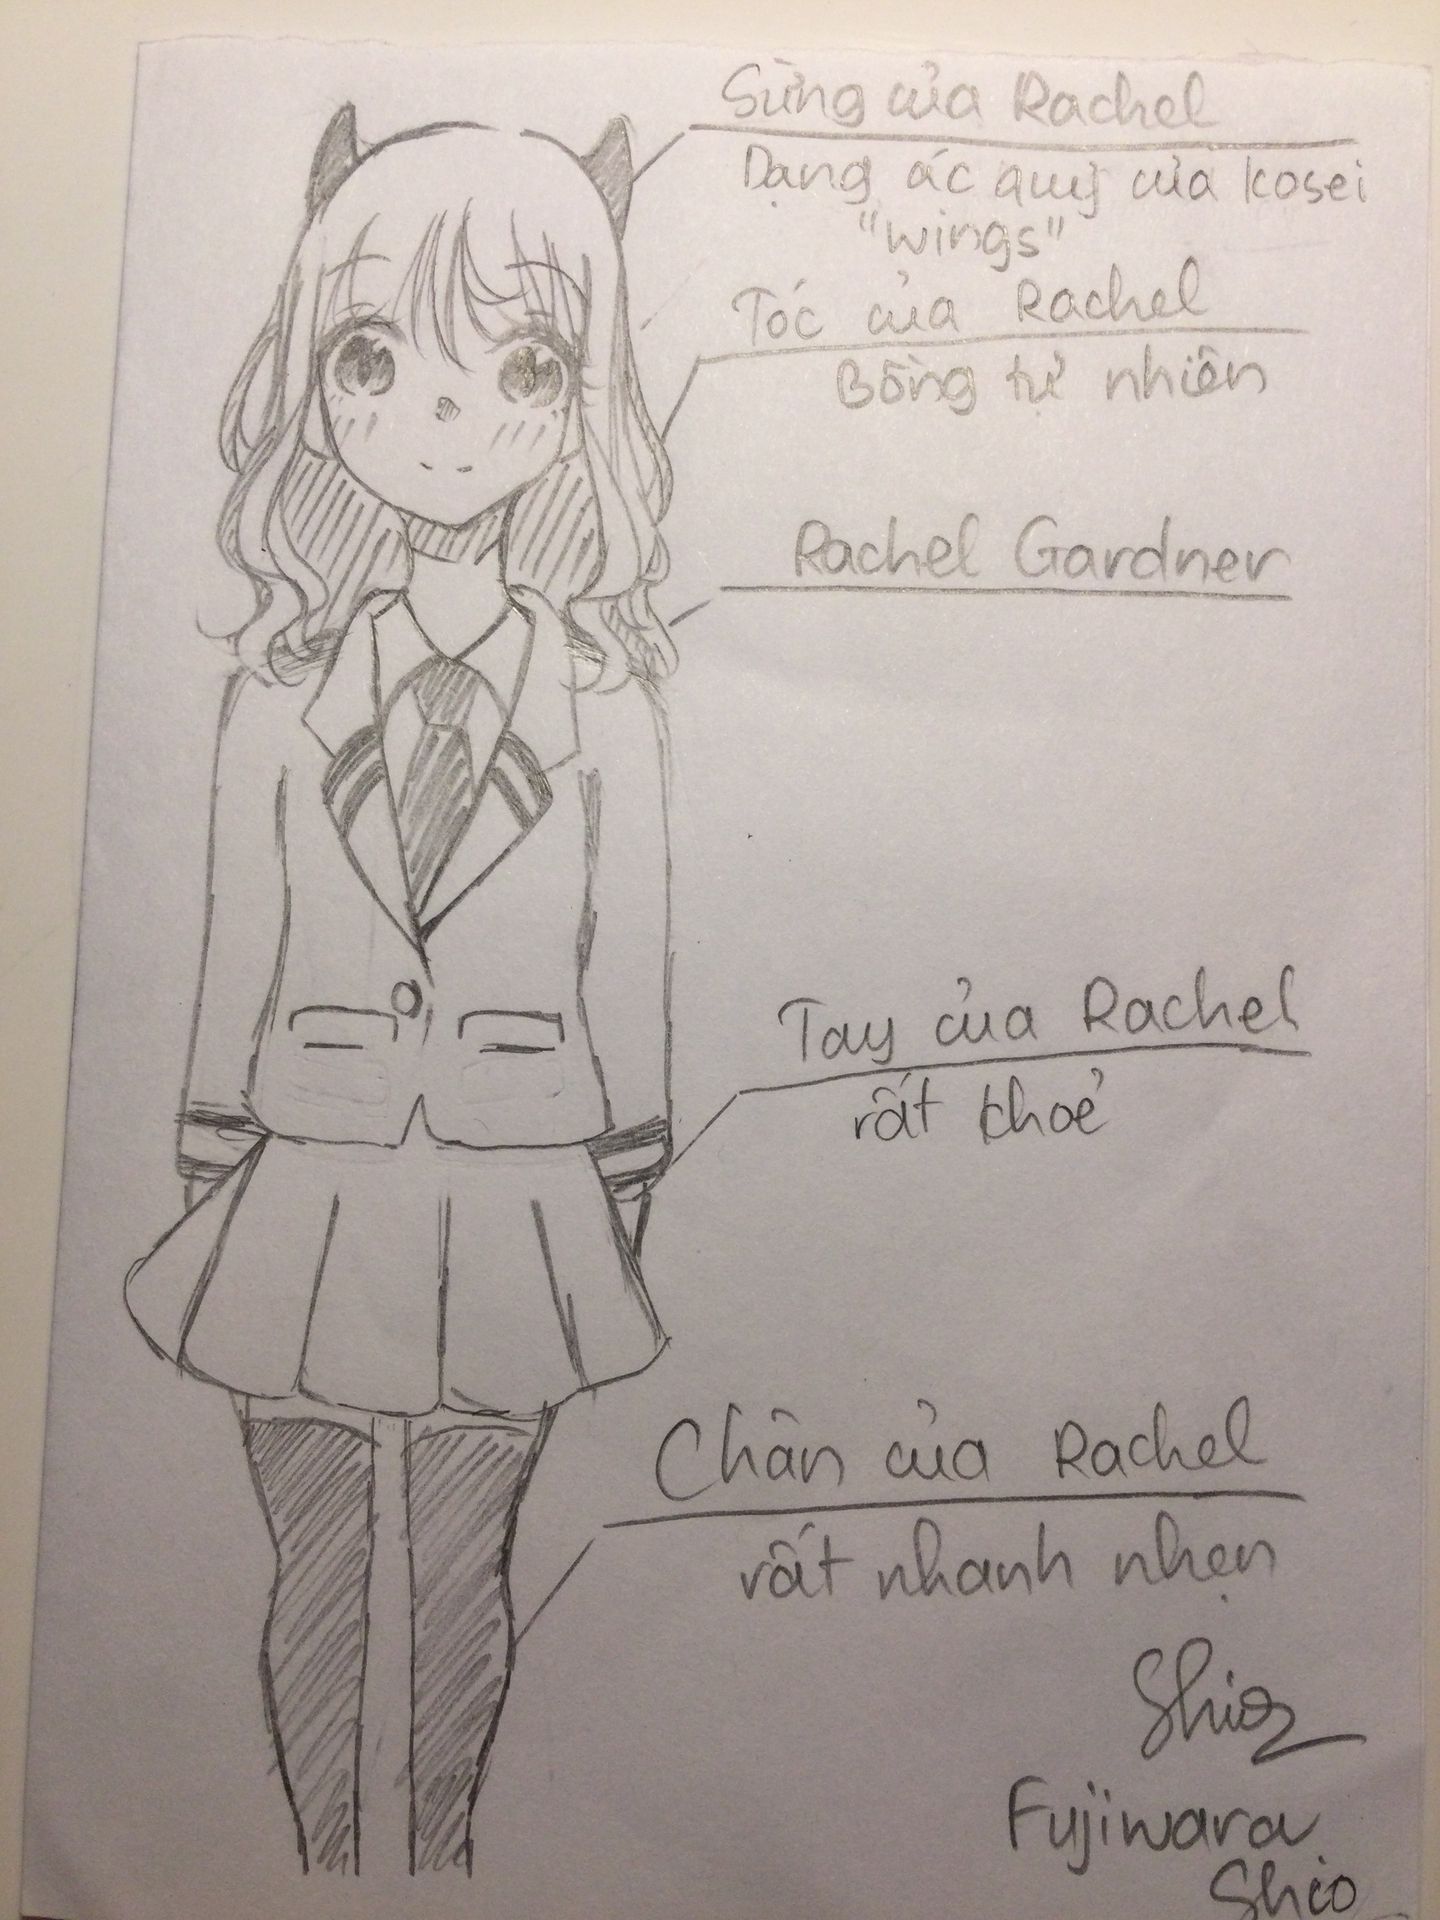 Sừng của Rachel
Dạng ác quỷ của kosei
"wings"
Tóc của Rachel
Bồng tự nhiên
Rachel Gardner
Tay của Rachel
rất khoẻ
Chân của Rachel
rất nhanh nhẹn
Shio
Fujiwara
Shio